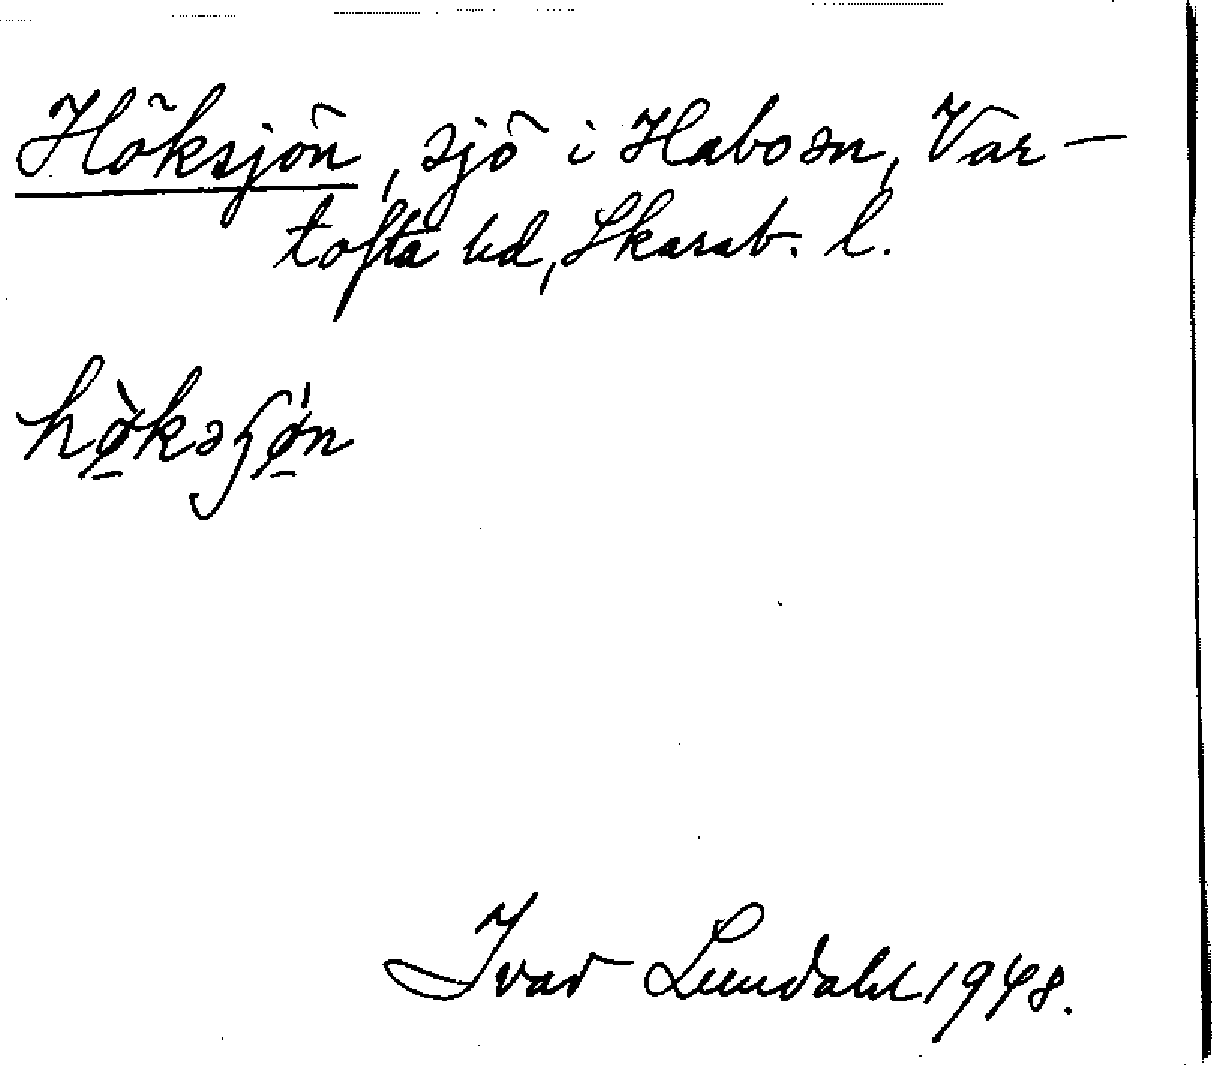 Höksjön, sjö i Habo sn, Var-
tofta hd, Skarab. l.
hø̀ksʃø̍n
Ivar Lundahl 1948.